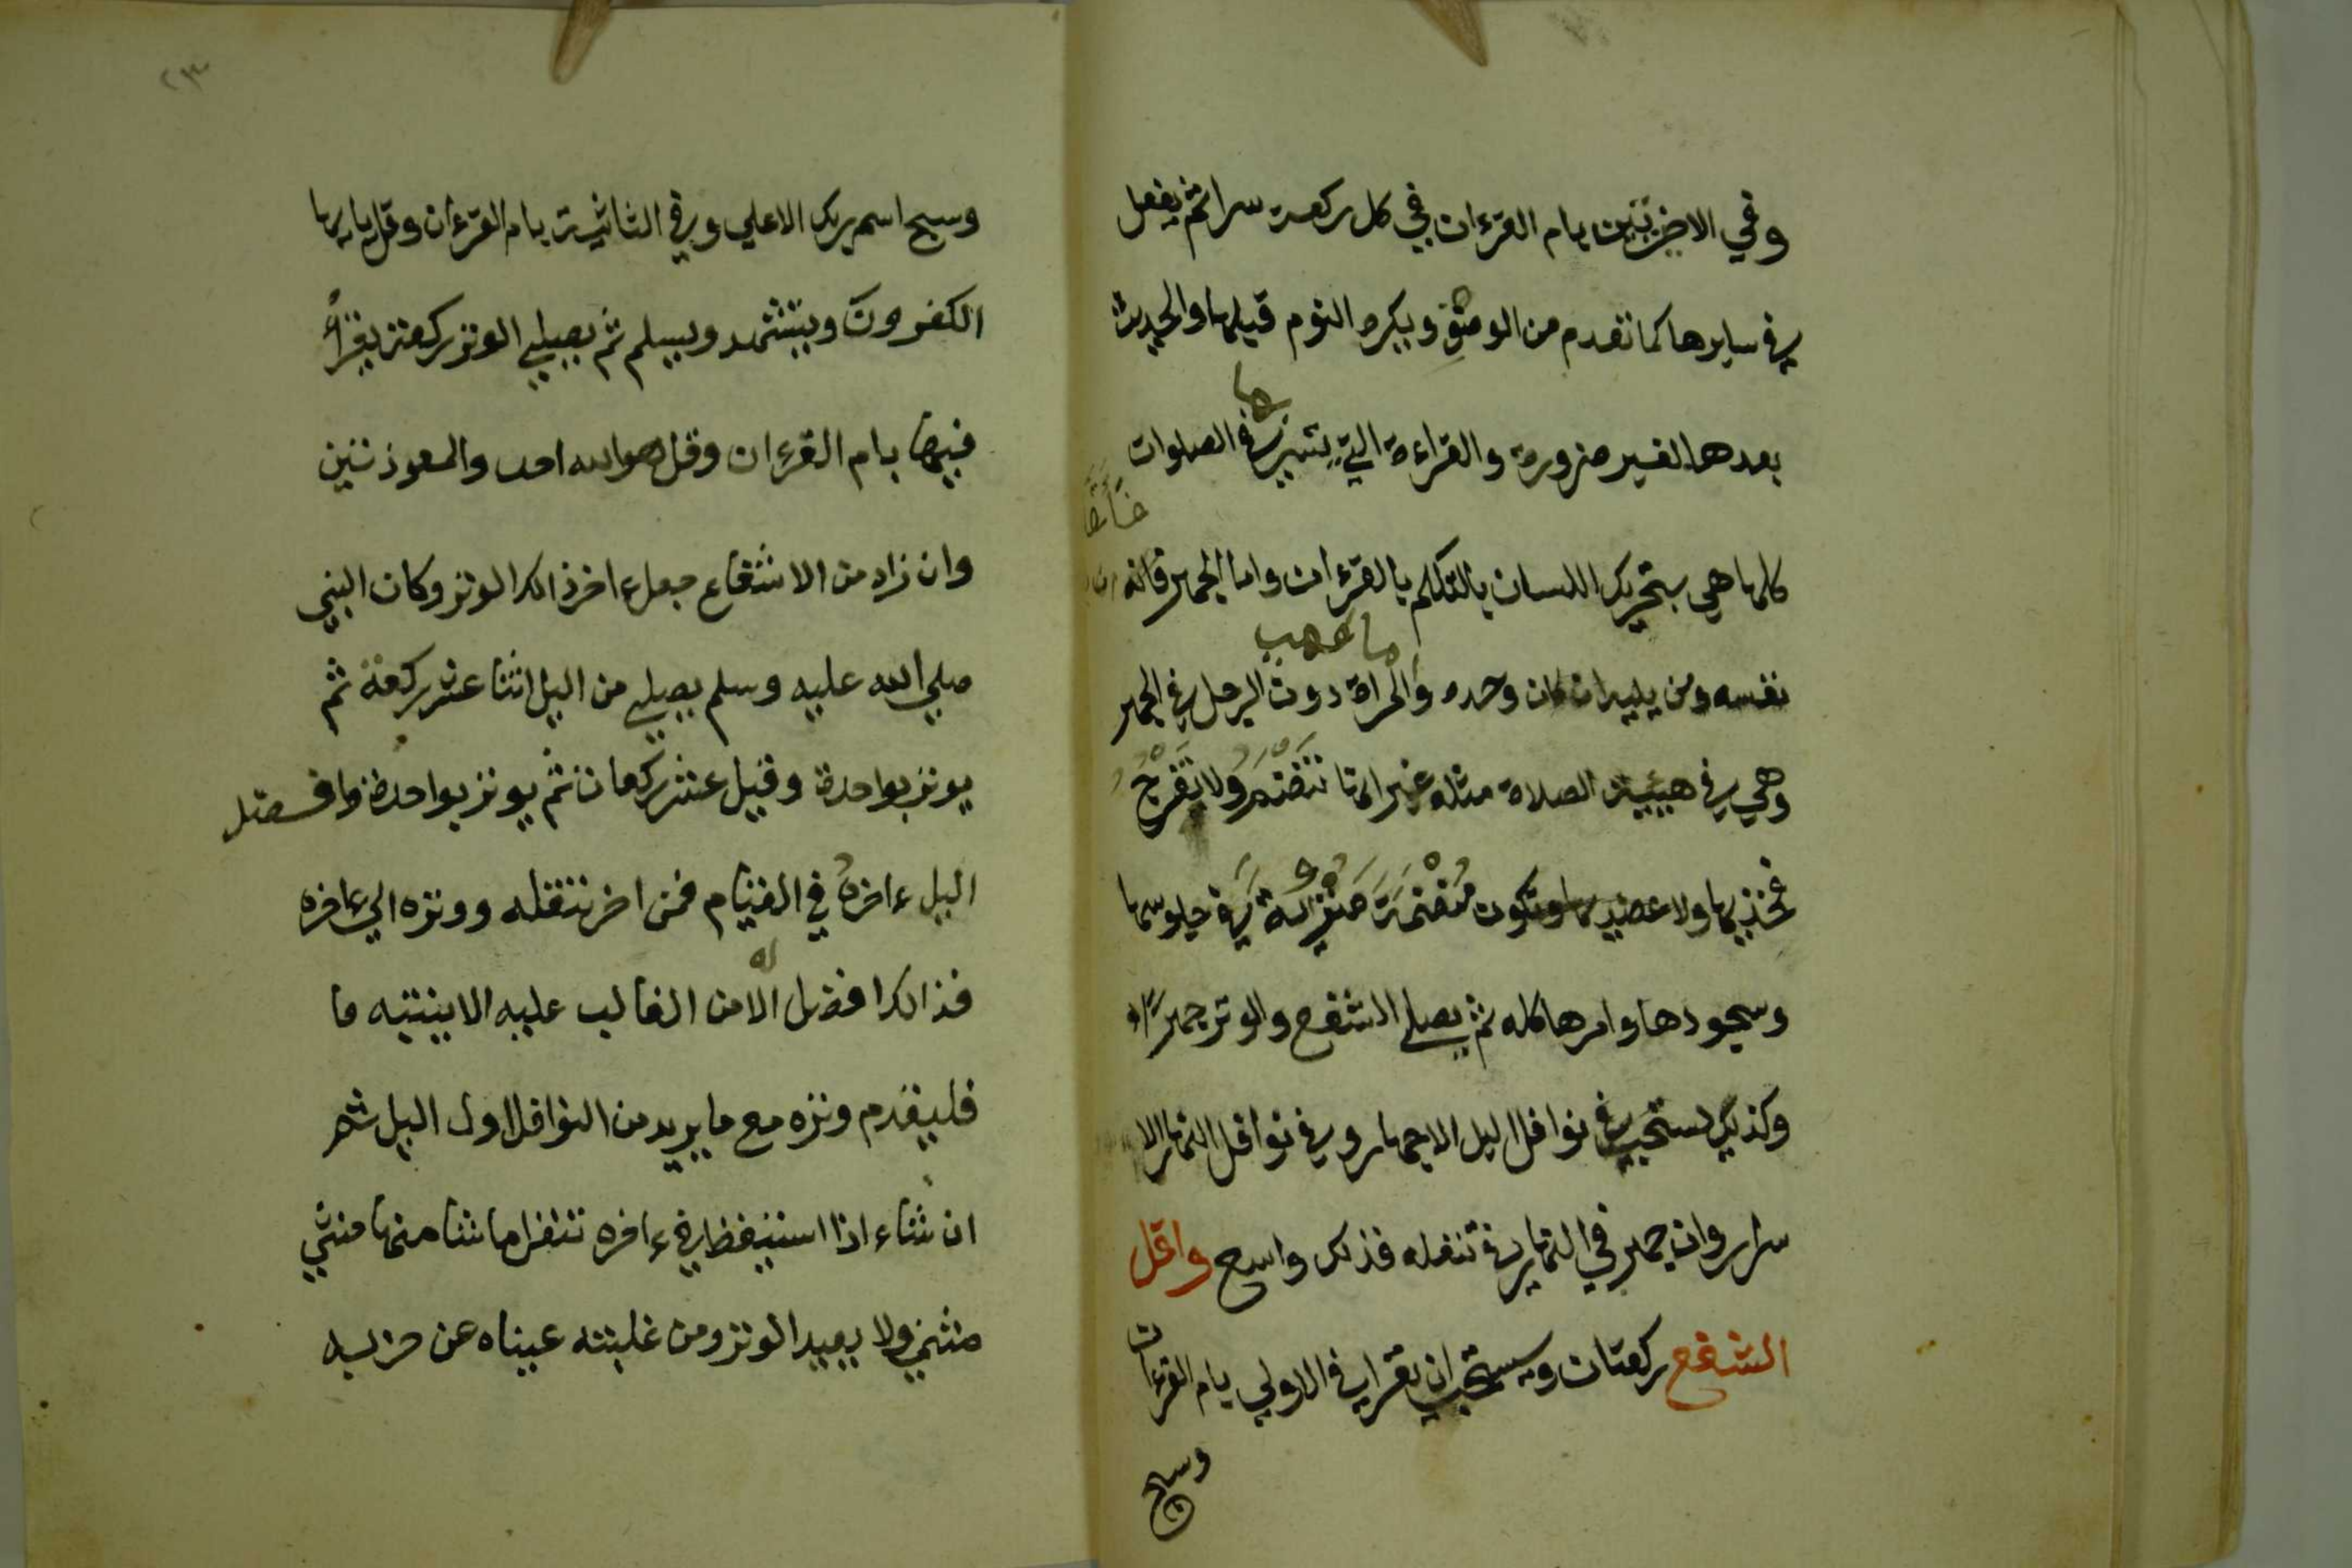 وفي الاخرتين بام القرءان في كل ركعة سرا ثم يفعل
في سايرها كما تقدم من الوصف ويكره النوم قبلها والحديث
بعدها لغير ضرورة والقراءة التي يسر بها في الصلوات
كلها هي بتحريك اللسان بالتكلم بالقرءان واما الجهر فانه
نفسه ومن يليه ان كان وحده والمراة دون الرجل في الجهر
وهي في هيئة الصلاة مثله غير انها تنضم ولا تفرج
فخذيها ولا عضديها وتكون منضمة منزوية في جلوسها
وسجودها وامرها كله ثم يصلي الشفع والوتر جهرا
وكذلك يستحب في نوافل اليل الاجهار وفي نوافل النهار الا
سرار وان جهر في النهار في تنفله فذلك واسع واقل
الشفع ركعتان ويستحب ان يقرا في الاولي بام القرءان
وسبح
٢٣
وسبح اسم ربك الاعلي وفي الثانية بام القرءان وقل يايها
الكفرون ويتشهد ويسلم ثم يصلي الوتر ركعة يقرأ
فيها بام القرءان وقل هو الله احد والمعوذتين
وان زاد من الاشفاع جعل ءاخر ذالك الوتر وكان النبي
صلي الله عليه وسلم يصلي من اليل اثنا عشر ركعة ثم
يوتر بواحدة وقيل عشر ركعات ثم يوتر بواحدة وافضل
اليل ءاخره في القيام فمن اخر تنفله ووتره الي ءاخره
فذالك افضل له الا من الغالب عليه الا ينتبه فا
فليقدم وتره مع ما يريد من النوافل اول اليل ثم
ان شاء اذا استيقظ في ءاخره تنفل ما شا منها مثني
مثني ولا يعيد الوتر ومن غلبته عيناه عن حزبه